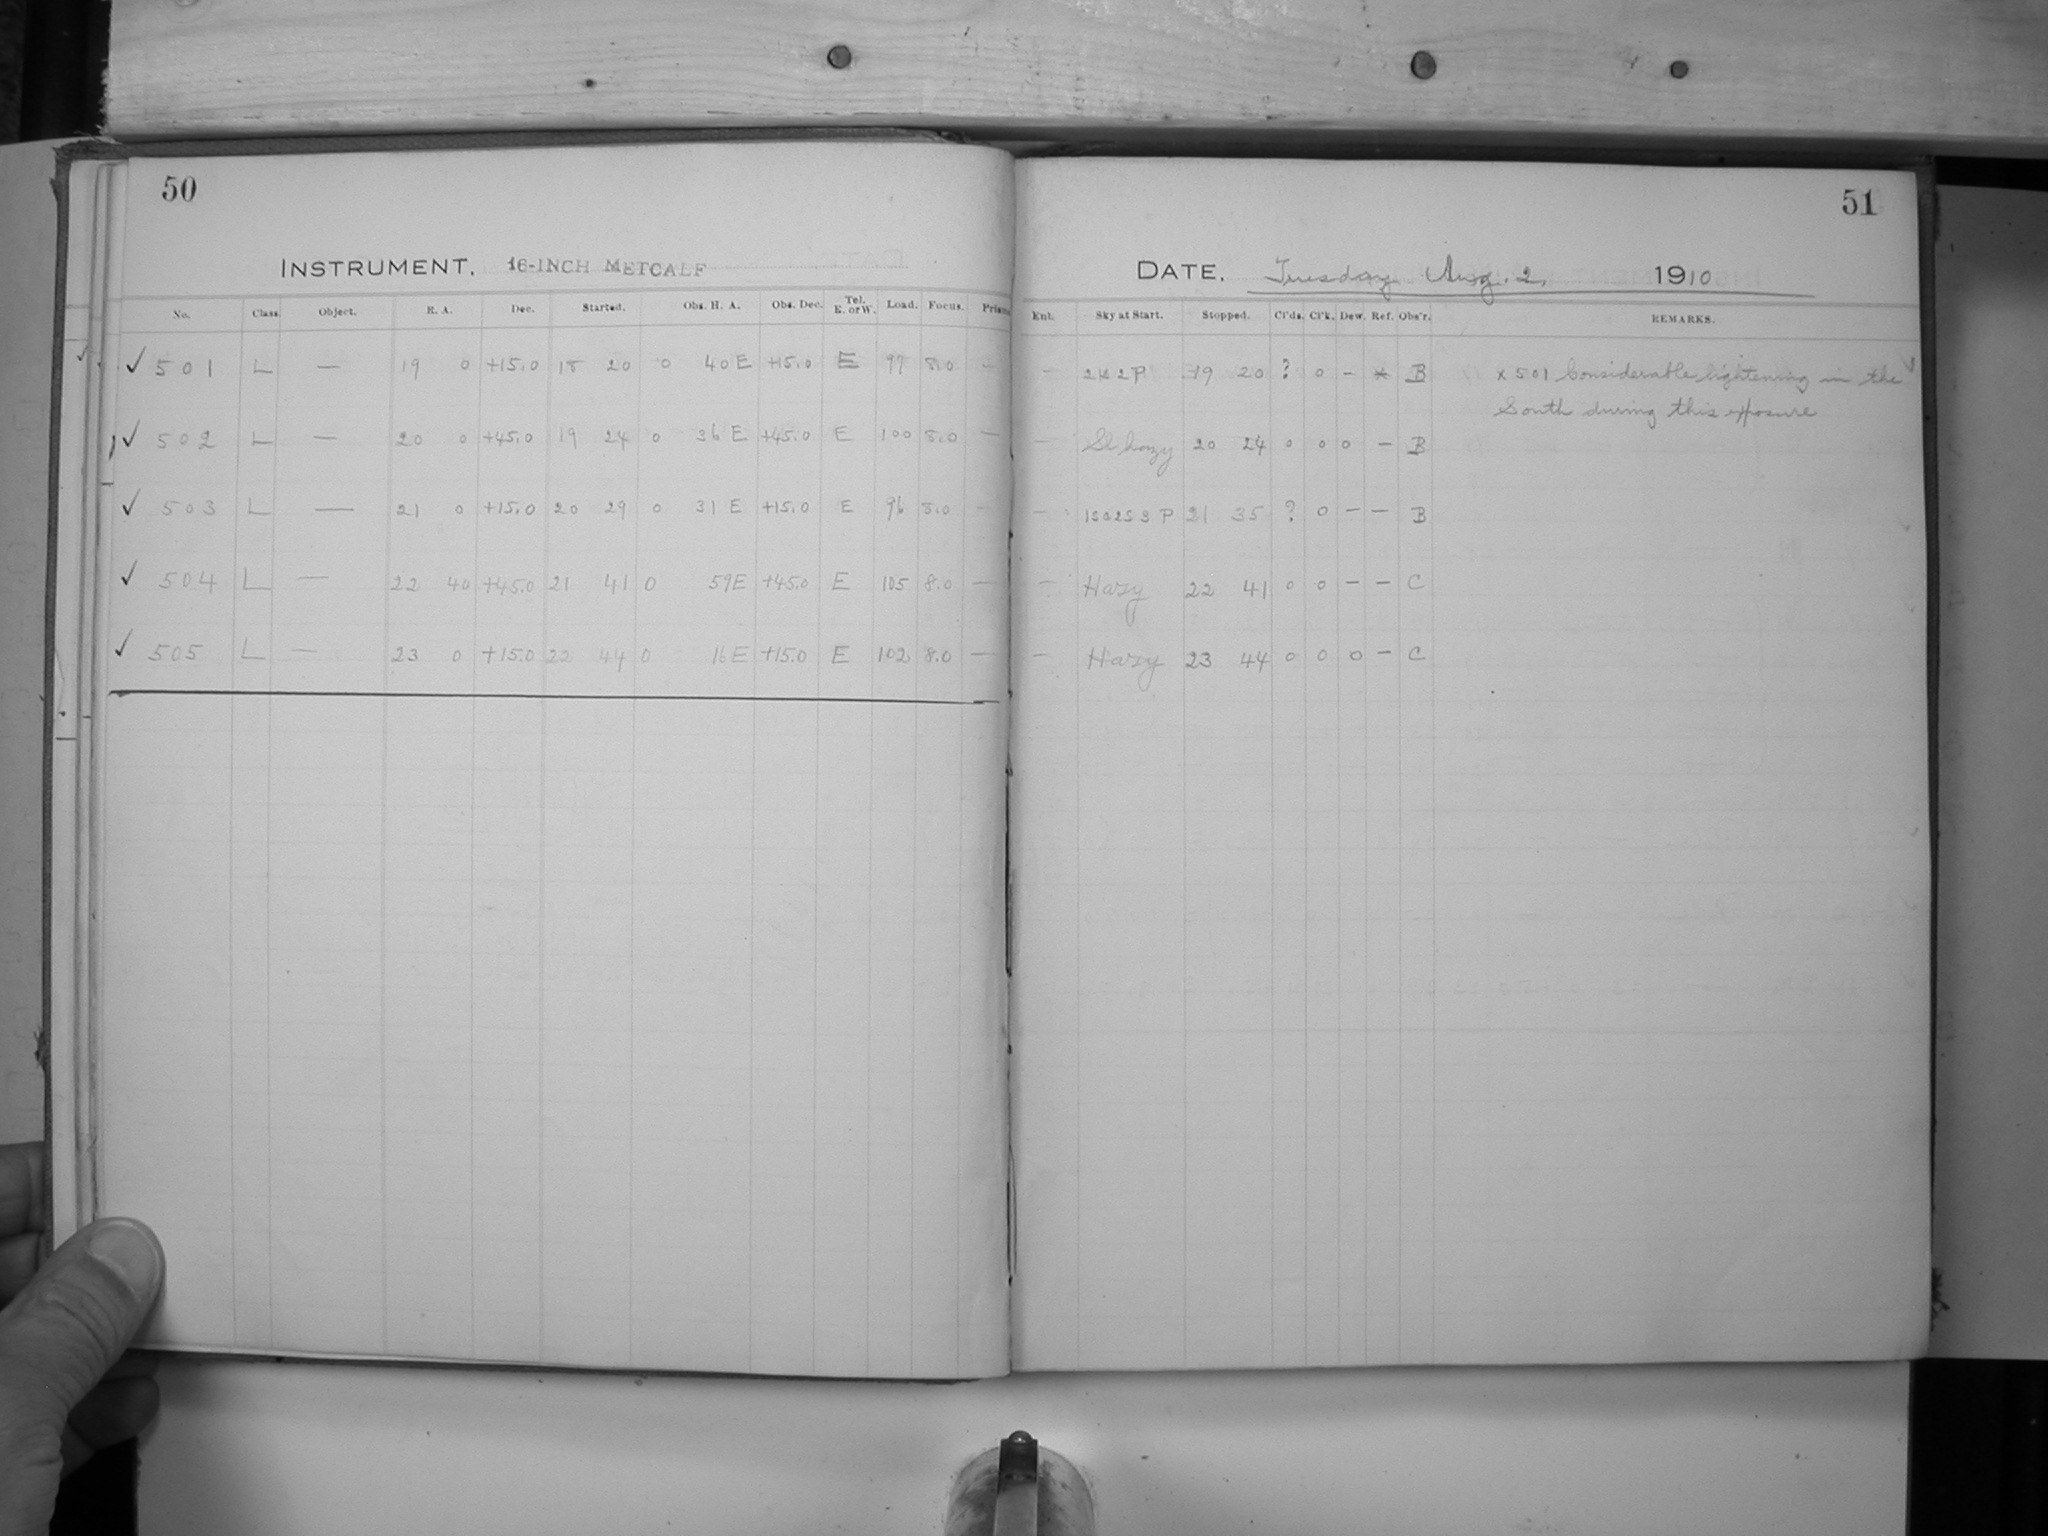 50
INSTRUMENT. 16-INCH METCALF
No. Class. Object. R. A. Dec. Started. Obs. H. A. Obs. Dec. Tel. E. or W. Load. Focus. Prism
✓ 501 L — 19 0 +15.0 18 20 0 40 E +15.0 E 97 8.0 —
✓ 502 L — 20 0 +45.0 19 24 0 36 E +45.0 E 100 8.0 —
✓ 503 L — 21 0 +15.0 20 29 0 31 E +15.0 E 96 8.0 —
✓ 504 L — 22 40 +45.0 21 41 0 59 E +45.0 E 105 8.0 —
✓ 505 L — 23 0 +15.0 22 44 0 16 E +15.0 E 102 8.0 —
51
DATE. Tuesday Aug. 2, 1910
Ent. Sky at Start. Stopped. Cl'ds. Cl'k. Dew. Ref. Obs'r. REMARKS.
— 19 20 ? 0 – * B x 501 Considerable lightening in the
South during this exposure
— Sl hazy 20 24 0 0 0 — B
— 21 35 ? 0 — — B
— Hazy 22 41 0 0 — — C
— Hazy 23 44 0 0 0 — C